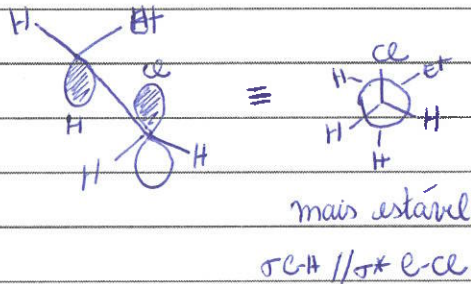 H Et
Cl Cl
H ≡ H Et
H H
H H H
mais estável
σC-H // σ* C-Cl